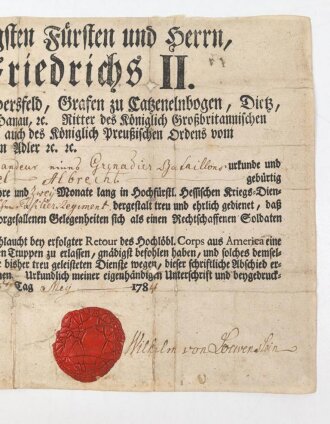 gsten Fürsten und Herrn,
Friedrichs II.
ersfeld, Grafen zu Catzenelnbogen, Dietz,
Hanau, ꝛc. Ritter des Königlich Großbritannischen
auch des Königlich Preußischen Ordens vom
n Adler ꝛc. ꝛc.
andeur eines Grenadier Bataillons, urkunde und
Albrecht gebürtig
hre und zwey Monate lang in Hochfürstl. Hessischen Kriegs-Dien-
Regiment, dergestalt treu und ehrlich gedient, daß
vorgefallenen Gelegenheiten sich als einen Rechtschaffenen Soldaten
chlaucht bey erfolgter Retour des Hochlöbl. Corps aus America eine
en Truppen zu erlassen, gnädigst befohlen haben, und solches demsel-
r bisher treu geleisteten Dienste wegen, dieser schriftliche Abschied er-
en. Urkundlich meiner eigenhändigen Unterschrift und beygedruck-
Tag May 1784
Wilhelm von Loewenstein